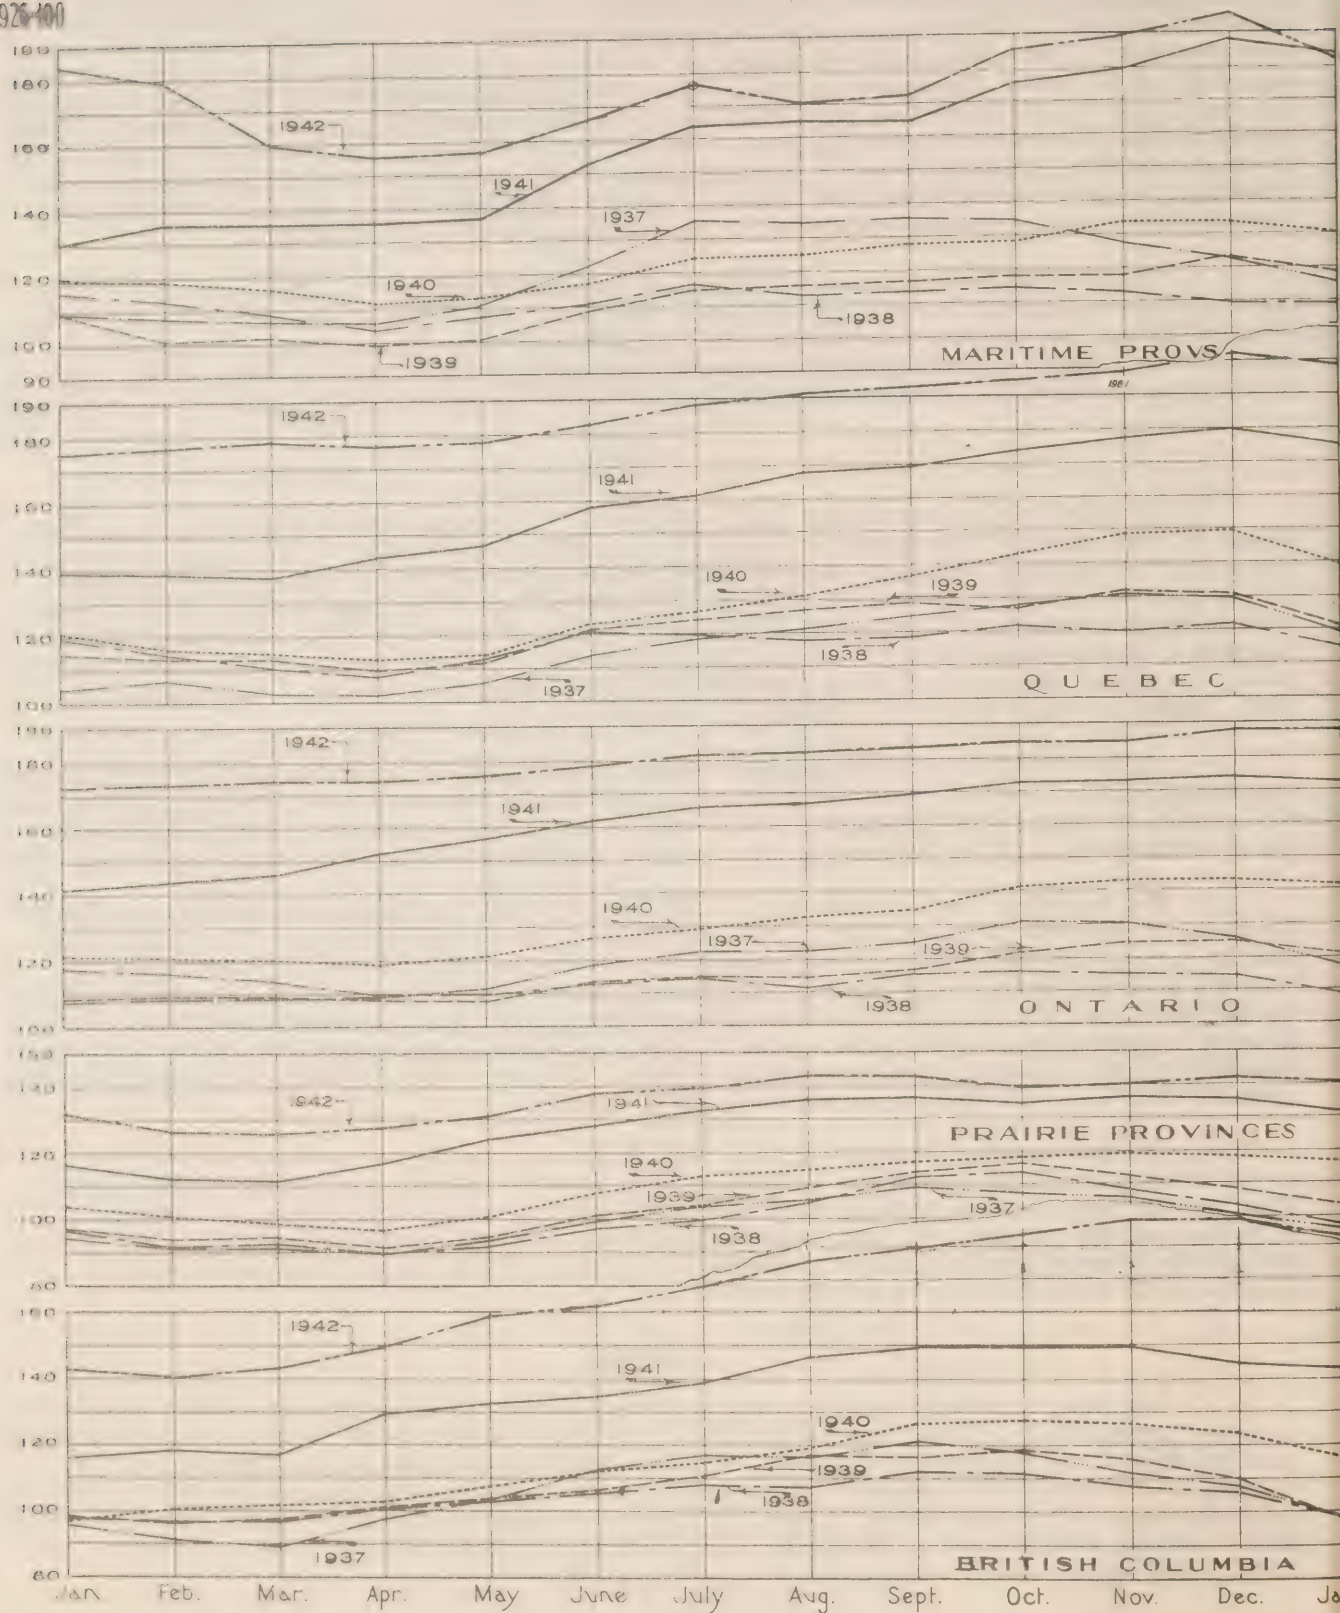 1926=100
190
180
160
140
120
100
90
1942
1941
1937
1940
1938
1939
MARITIME PROVS
1981
190
180
160
140
120
100
1942
1941
1940
1939
1938
1937
QUEBEC
190
180
160
140
120
100
1942
1941
1940
1937
1939
1938
ONTARIO
150
140
120
100
80
1942
1941
PRAIRIE PROVINCES
1940
1939
1937
1938
160
140
120
100
80
1942
1941
1940
1939
1938
1937
BRITISH COLUMBIA
Jan Feb. Mar. Apr. May June July Aug. Sept. Oct. Nov. Dec. Ja